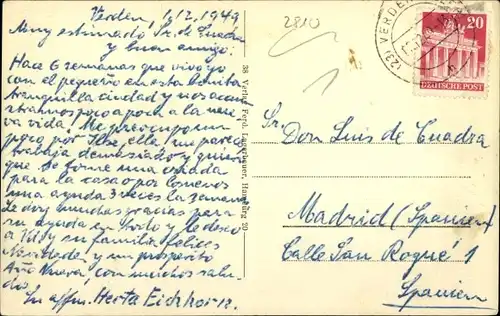 Verden, 1/12, 1949
Muy estimado Sr. de Cuadra
y buen amigo:
Hace 6 semanas que vivo yo
con el pequeño en esta bonita
tranquilla ciudad y nos acon
poco a poco a la nue
va vida. Me preocupo un
poco por Ilse, ella me parece
trabaja demasiado y quiero
que se tome una criada
para la casa o por lo menos
una ayuda 3 veces la semana
Le doy muchas gracias para
su ayuda en todo y le deseo
a Vd. y su familia felices
Navidades y un prospérito
Año Nuevo, con muchos salu-
dos,
Su affm. Herta Eichhorn.
38 Verlag Ferd. Lagerbauer, Hamburg 39
2810
(23) VERDEN
20
DEUTSCHE POST
Sr.
Don Luis de Cuadra
Madrid (Spanien)
Calle San Roqué 1
Spanien